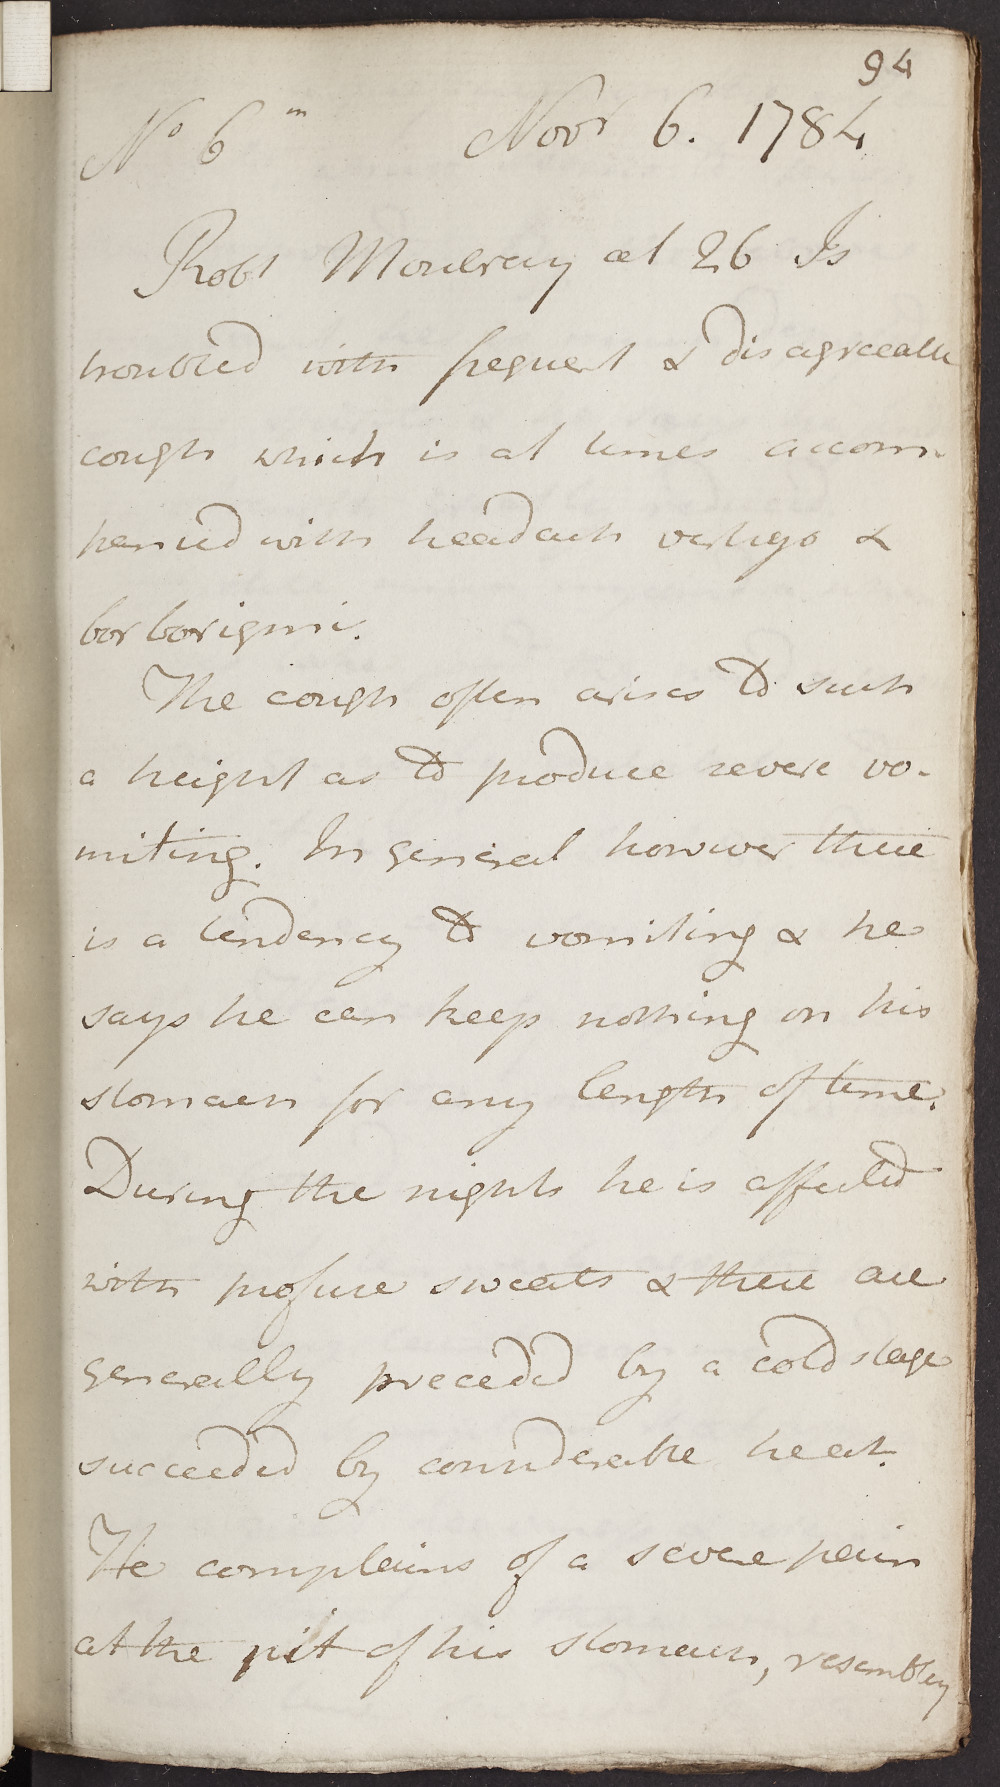 94
No 6 m Novr 6. 1784
Robt Moulray æt 26 Is
troubled with frequent & disagreeable
cough which is at times accom-
panied with headach vertigo &
borborigmi.
The cough often arises to such
a height as to produce severe vo-
miting. In general however there
is a tendency to vomiting & he
says he can keep nothing on his
stomach for any length of time.
During the nights he is affected
with profuse sweats & these are
generally preceded by a cold stage
succeeded by considerable heat.
He complains of a severe pain
at the pit of his stomach, resembling